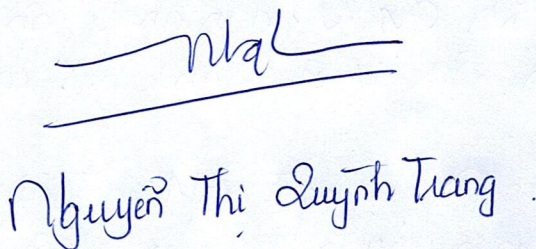 Nguyễn Thị Quỳnh Trang